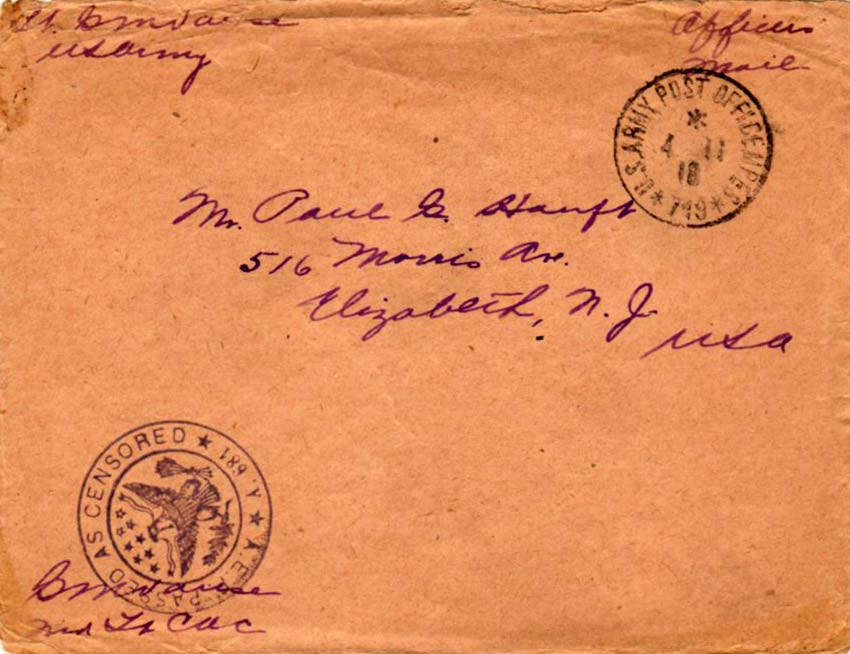 Lt. BM Vause
US Army
Officers
Mail
U.S. ARMY POST OFFICE MPES
*
4 11
18
* 719 *
Mr. Paul G. Hauft
516 Morris Av.
Elizabeth, N. J.
USA
A.E. PASSED AS CENSORED ★ A. 681 ★
BM Vause
Lt CAC